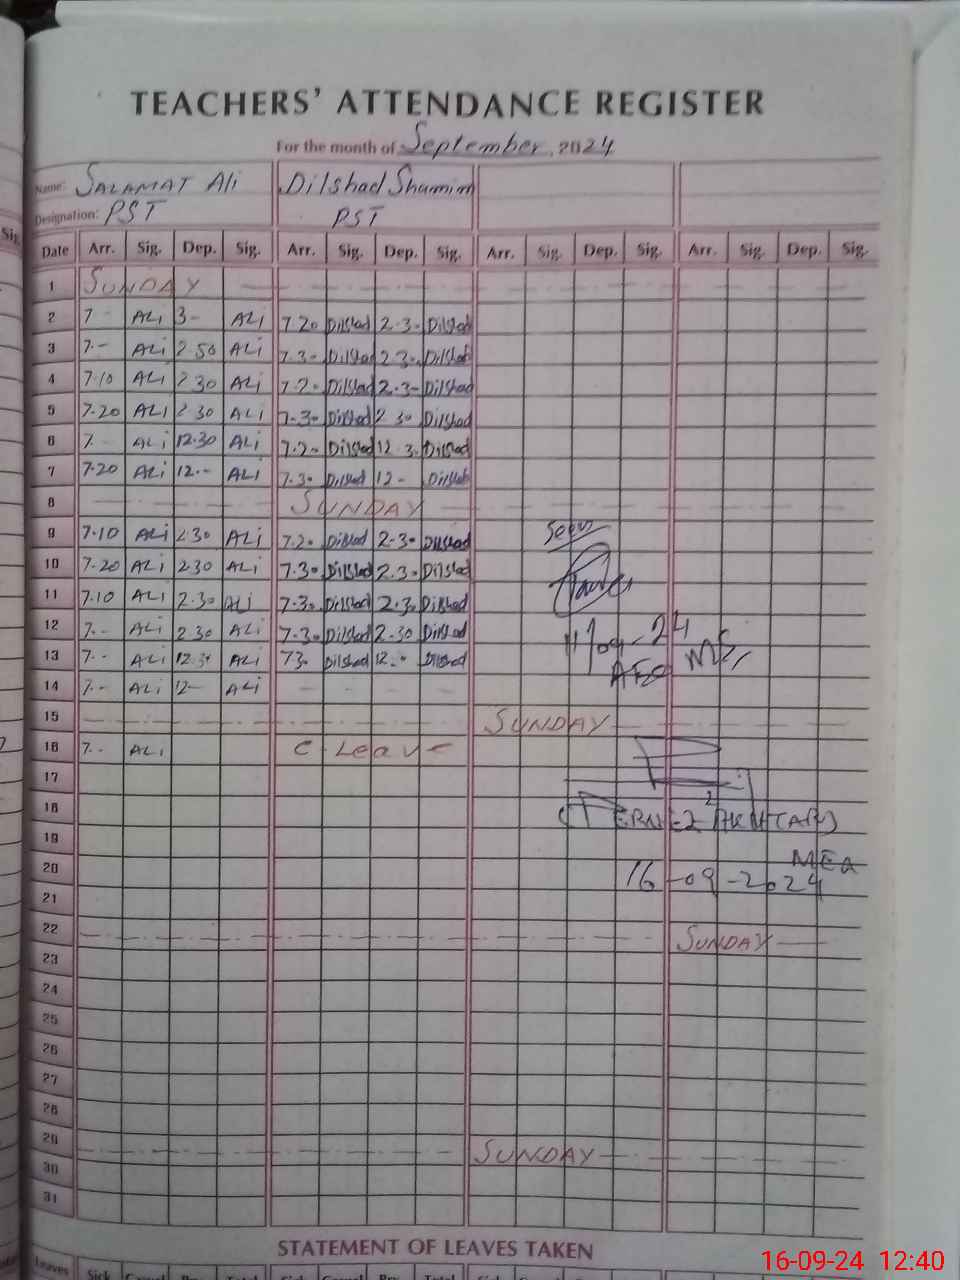 TEACHERS' ATTENDANCE REGISTER
For the month of September, 2024
Name: SALAMAT Ali Dilshad Shamim
Designation: PST PST
Date Arr. Sig. Dep. Sig. Arr. Sig. Dep. Sig. Arr. Sig. Dep. Sig. Arr. Sig. Dep. Sig.
1 SUNDAY
2 7 - ALi 3- ALi 7.20 Dilshad 2.3- Dilshad
3 7.- ALi 2.50 ALi 7.3- Dilshad 2.3- Dilshad
4 7.10 ALi 2 30 ALi 7.2- Dilshad 2.3- Dilshad
5 7.20 ALi 2 30 ALi 7.3- Dilshad 2 30 Dilshad
6 7. ALi 12.30 ALi 7.2- Dilshad 12 3- Dilshad
7 7.20 ALi 12.- ALi 7.3- Dilshad 12- Dilshad
8 SUNDAY
9 7.10 ALi 2.30 ALi 7.2- Dilshad 2.3- Dilshad Seen
10 7.20 ALi 2.30 ALi 7.3- Dilshad 2.3- Dilshad
11 7.10 ALi 2.30 ALi 7.3- Dilshad 2.3- Dilshad
12 7.- ALi 2 30 ALi 7.3- Dilshad 2.30 Dilshad 11/09-24
13 7.- ALi 12.30 ALi 73- Dilshad 12.- Dilshad AEO
14 7.- ALi 12- ALi
15 SUNDAY
16 7.- ALi C. Leave
17
18
19
20 MEA
16-09-2024
21
22 SUNDAY
23
24
25
26
27
28
29 SUNDAY
30
31
STATEMENT OF LEAVES TAKEN
Leaves Sick Casual Total Sick Casual Prv. Total Sick
16-09-24 12:40